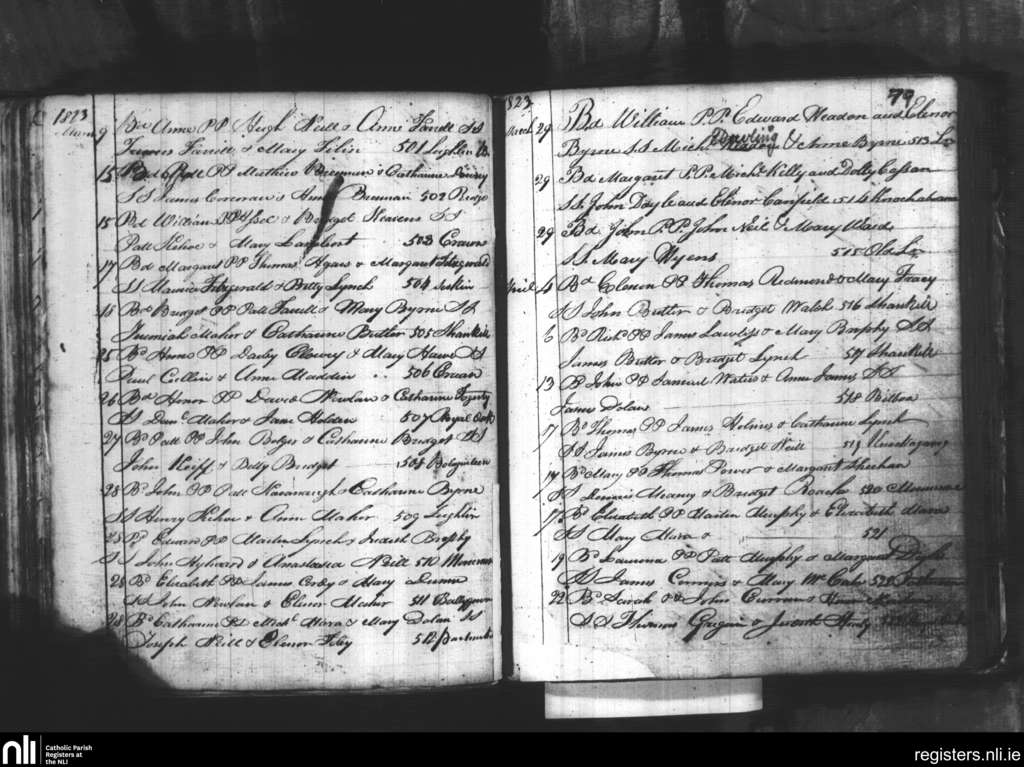 1823
March 9 Bd Anne PP Hugh Neill & Anne Farrell SS
Farrell & Mary 501 Leighlin B
15 Bd Patt PP Mathew Brennan & Catharine
SS James & Brennan 502 Ridge
15 Bd William PP & Bridget SS
Patt Kehoe & Mary Lambert 503 Craan
17 Bd Margaret PP Thomas Agar & Margaret Fitzgerald
SS Maurice Fitzgerald & Betty Lynch 504
18 Bd Bridget PP Patt Farrell & Mary Byrne SS
Jeremiah Maher & Catharine Butler 505 Shankill
25 Bd PP Darby Clowry & Mary SS
Paul Cullin & Anne Maddin 506 Craan
26 Bd Honor PP David Nowlan & Catharine
SS Danl Maher & Jane Holden 507 Royal Oak
27 Bd Patt PP John Bolger & Catharine Bridget SS
John Keiff & Betty Bridget 508
28 Bd John PP Patt Kavanaugh & Catharine Byrne
SS Henry Kehoe & Anne Maher 509 Leighlin
28 Bd Edward PP Martin Lynch & Judith Brophy
SS John Hyland & Anastasia Neill 510
28 Bd Elizabeth PP James Cody & Mary
SS John Nowlan & Elenor Maher 511
28 Bd Catharine PP Michl Mara & Mary Dolan SS
Joseph Neill & Elenor Foley 512
79
1823
March 29 Bd William P.P. Edward Headon and Elenor
Dowling
Byrne S.S. Michl & Anne Byrne 513 Ln
29 Bd Margaret P.P. Michl Kelly and Dolly Cassan
S.S. John Doyle and Elenor Canfield 514
29 Bd John P.P. John Neil & Mary Ward
S.S. Mary Wyens 515 Old Ln
April 4 Bd Elenor PP Thomas Redmond & Mary Tracy
SS John Butler & Bridget Walsh 516 Shankill
6 Bd Richd PP James Lawler & Mary Brophy SS
James Butler & Bridget Lynch 517 Shankill
13 Bd John PP Samuel Waters & Anne James SS
James Dolan 518
17 Bd Thomas PP James Holmes & Catharine Lynch
SS James Byrne & Bridget Neill 519
17 Bd Mary PP Thomas Power & Margaret Sheehan
SS Meany & Bridget Roache 520
17 Bd Elizabeth PP Martin Murphy & Elizabeth Mara
SS Mary Mara & 521
19 Bd PP Patt Murphy & Margaret Doyle
SS James & Mary McCabe 522
22 Bd Sarah PP John Curran &
SS Thomas & Judith
nli
Catholic Parish
Registers at
the NLI
registers.nli.ie